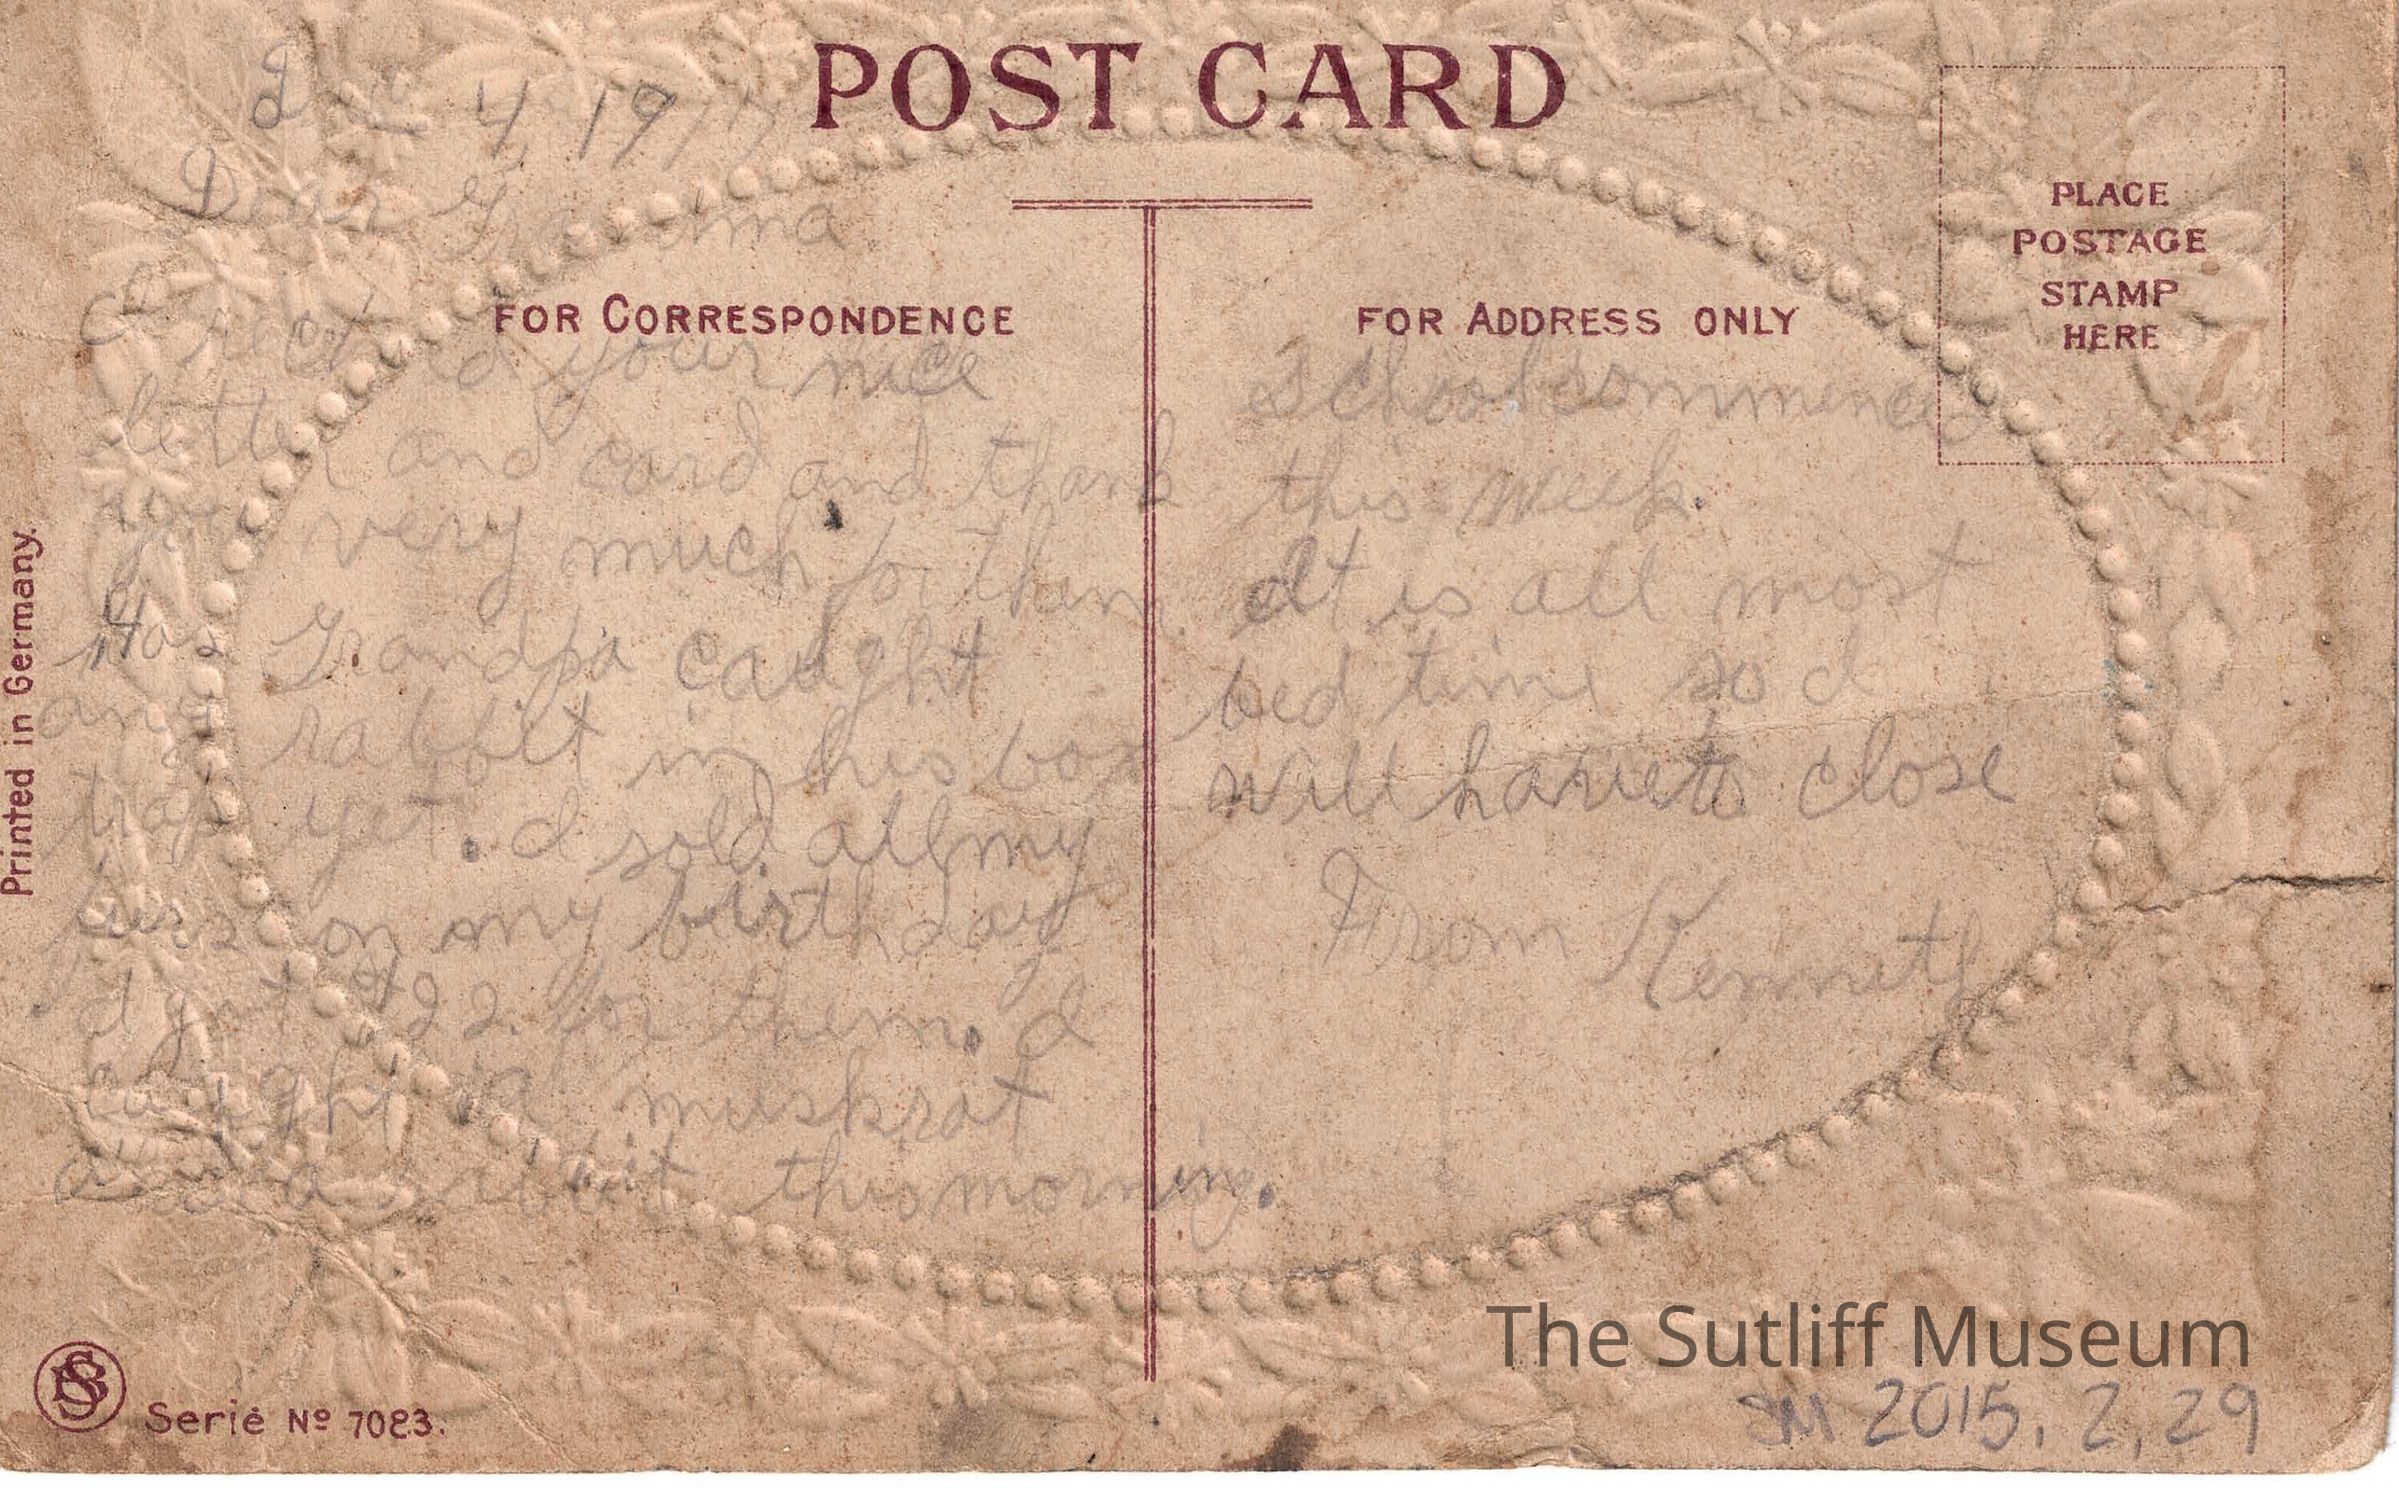 POST CARD
4, 19
Dear Grandma
PLACE
POSTAGE
STAMP
HERE
FOR CORRESPONDENCE
I rec'd your nice
letter and card and thank
you very much for them.
Has Grandpa caught
any rabbit in his box
trap yet. I sold all my
furs on my birthday
I got $22. for them. I
caught a muskrat
and a rabbit this morning.
FOR ADDRESS ONLY
School commence
this week.
It is all most
bed time so I
will have to close
From Kenneth
Printed in Germany.
Serie Nº 7083.
The Sutliff Museum
SM 2015.2.29